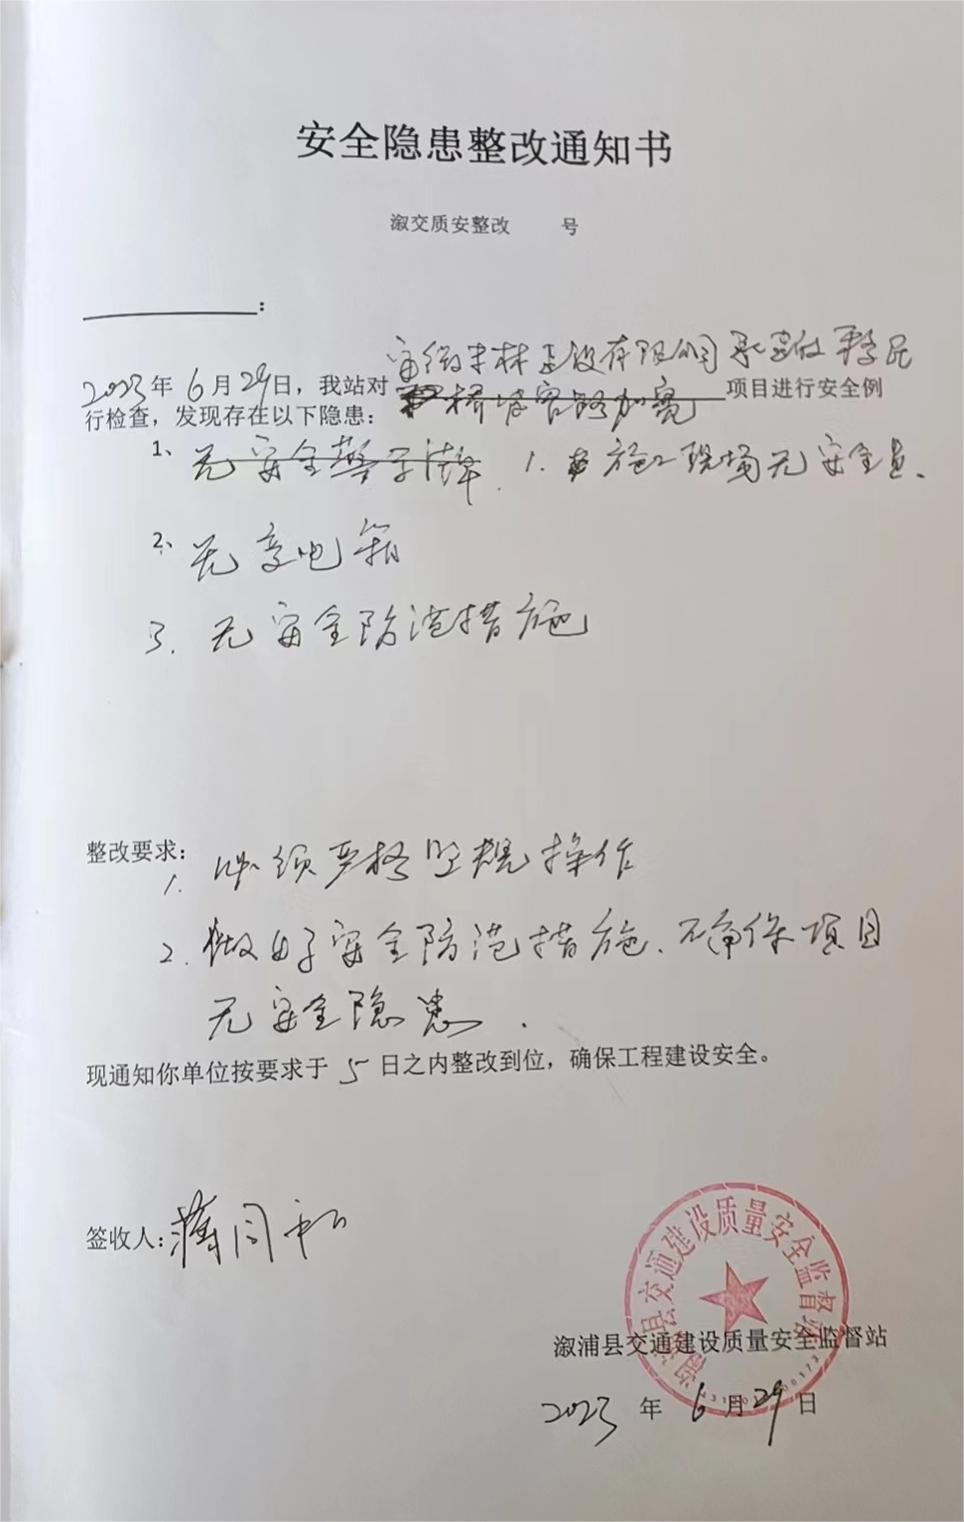 安全隐患整改通知书
溆交质安整改 号
：
安徽 林建设有限公司承建的 移民
2023年6月29日，我站对 桥 公路加宽 项目进行安全例
行检查，发现存在以下隐患：
1、无安全警示牌. 1. 施工现场无安全员、
2、无变电箱
3. 无安全防范措施
整改要求：
1. 必须严格按规操作
2. 做好安全防范措施、确保项目
无安全隐患.
现通知你单位按要求于 5 日之内整改到位，确保工程建设安全。
签收人：蒋同和
溆浦县交通建设质量安全监督站
溆浦县交通建设质量安全监督站
2023 年 6 月 29 日